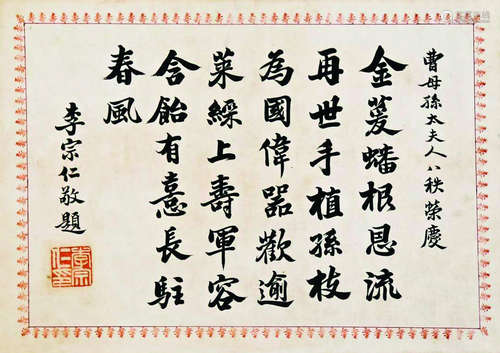 曹母孫太夫人八秩榮慶
金萲蟠根恩流
再世手植孫枝
為國偉器歡逾
萊綵上壽軍容
含飴有憙長駐
春風
李宗仁敬題
李宗
仁印